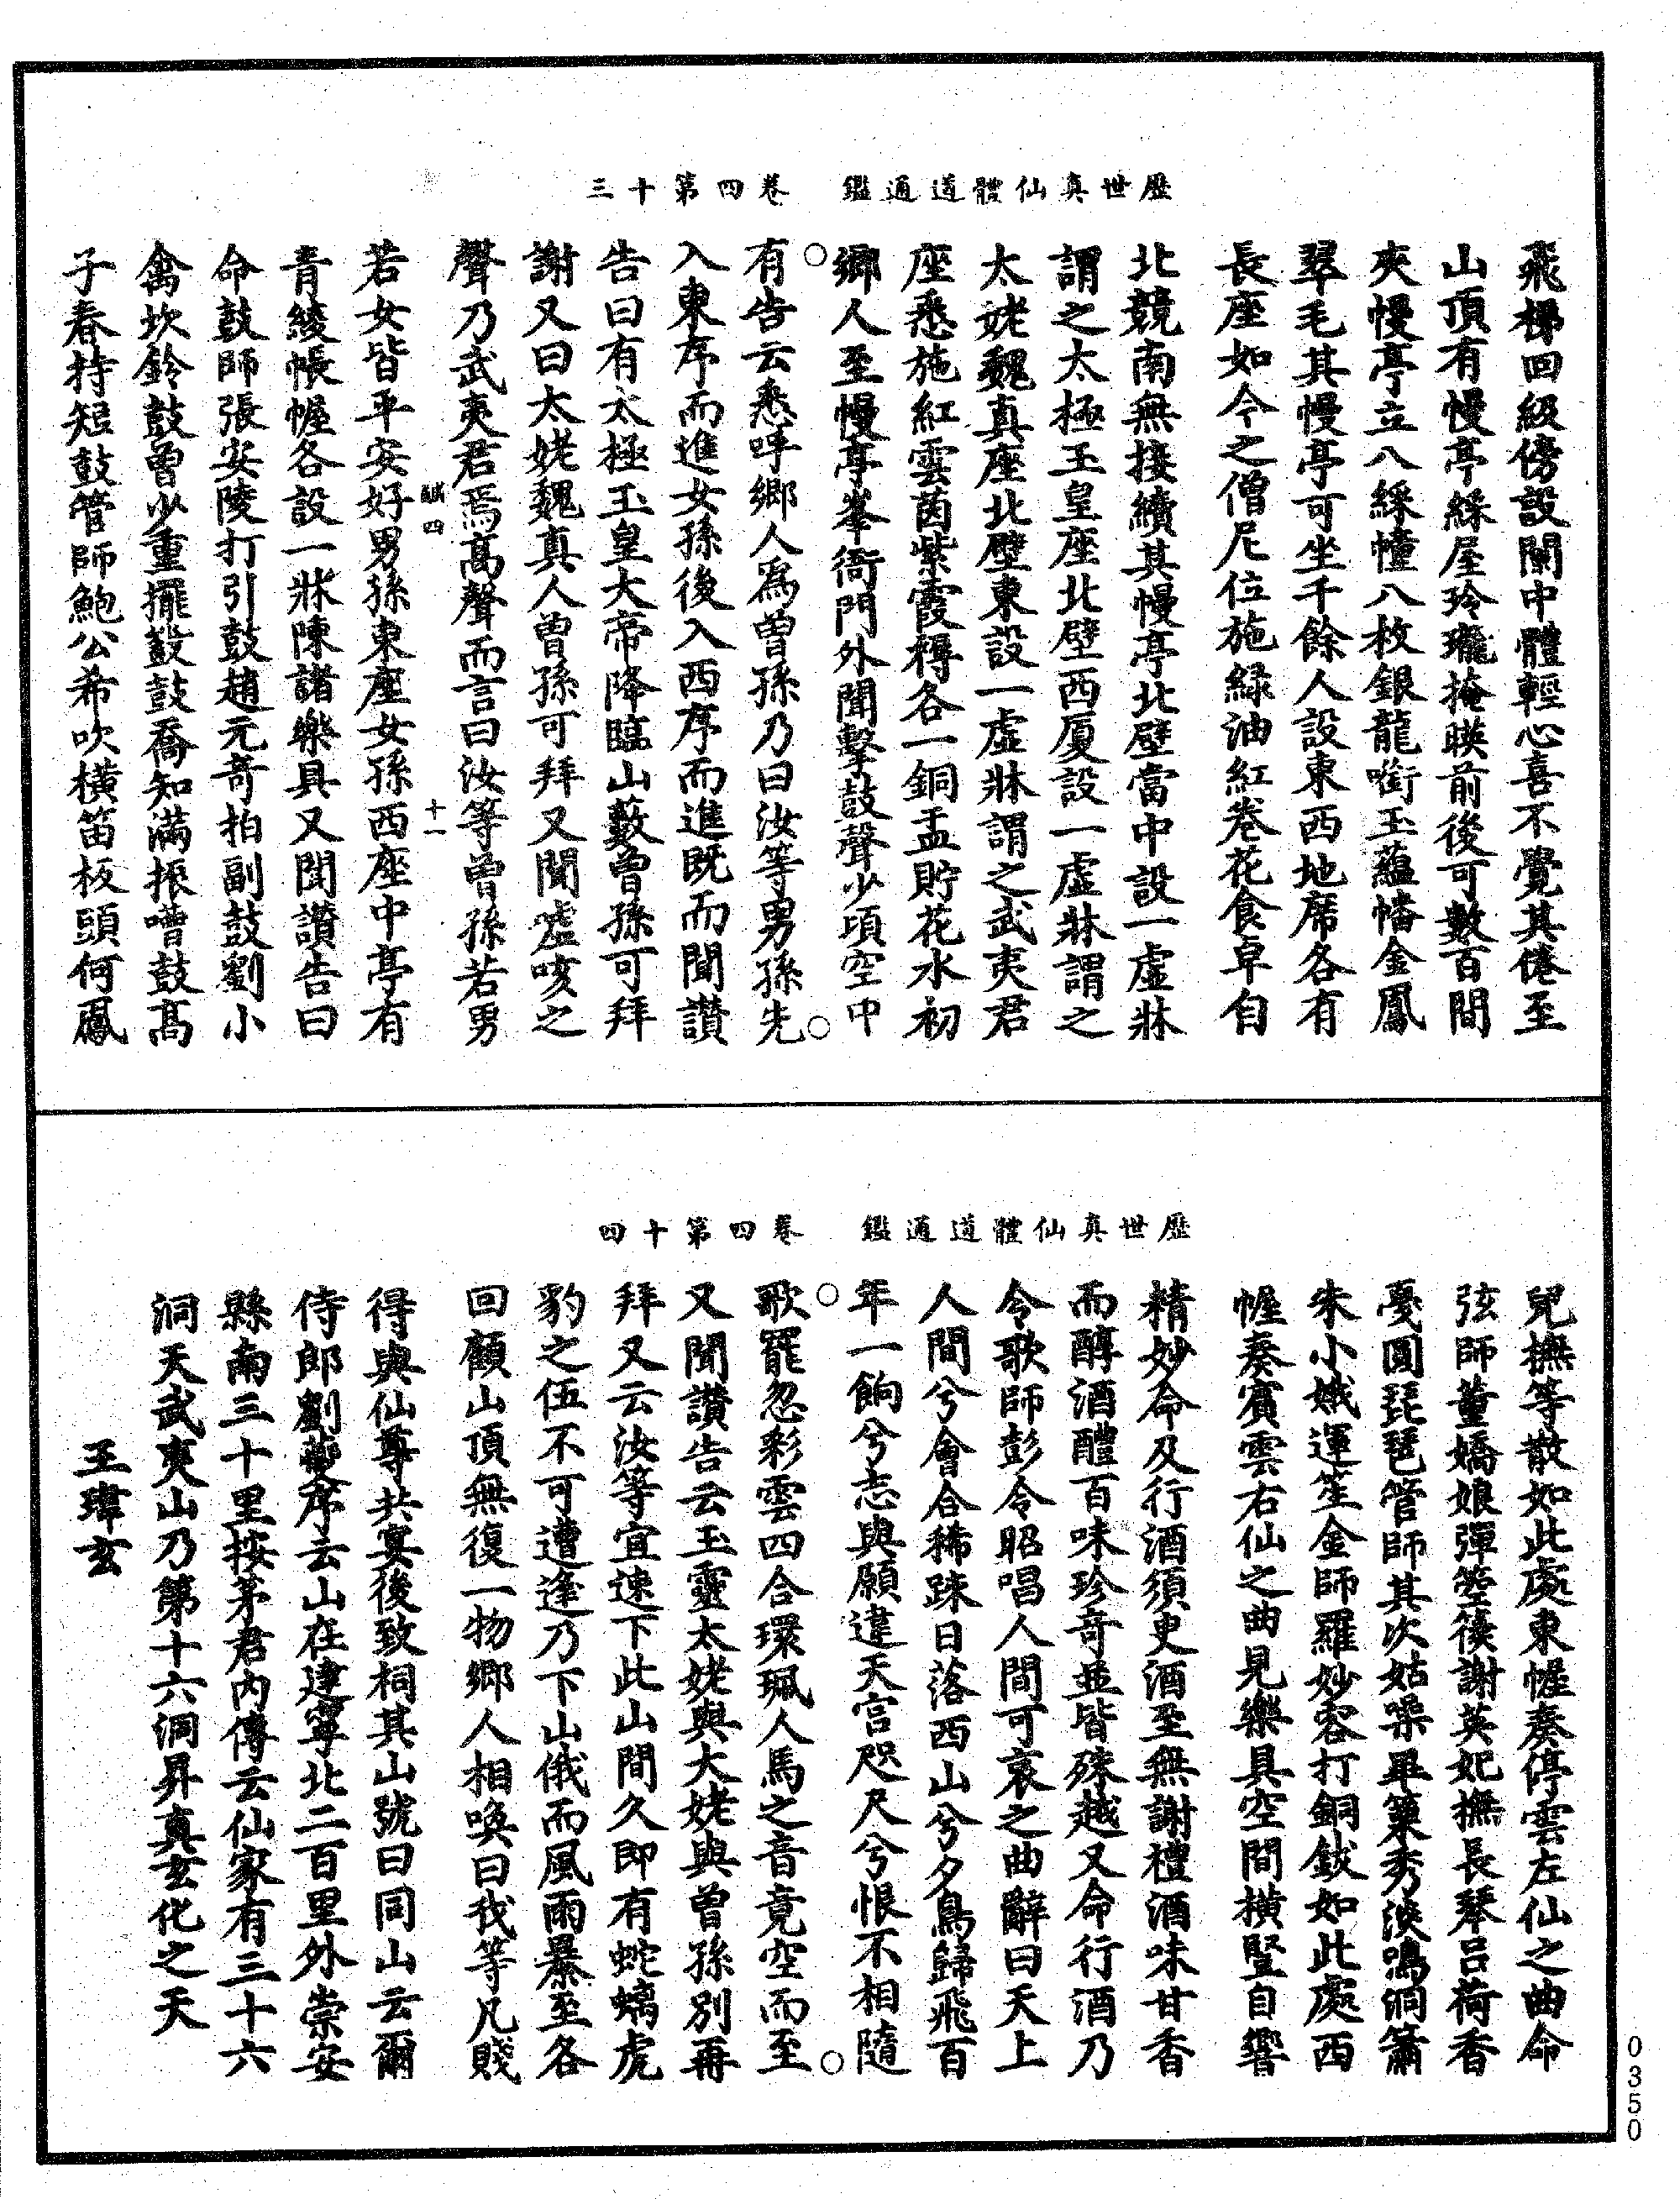 歷世真仙體道通鑑　卷四第十三
飛梯回級傍設闌中體輕心喜不覺其倦至
山頂有慢亭綵屋玲瓏掩暎前後可數百間
夾慢亭立八綵幢八枚銀龍啣玉蘊幡金鳳
翠毛其慢亭可坐千餘人設東西地席各有
長座如今之僧尼位施綠油紅卷花食卓自
北競南無接續其慢亭北壁當中設一虛牀
謂之太極玉皇座北壁西厦設一虛牀謂之
太姥魏真座北壁東設一虛牀謂之武夷君
座悉施紅雲茵紫霞褥各一銅盂貯花水初
鄉人至慢亭峯衙門外聞擊鼓聲少項空中
有告云悉呼鄉人為曾孫乃曰汝等男孫先
入東序而進女孫後入西序而進既而聞讚
告曰有太極玉皇大帝降臨山藪曾孫可拜
謝又曰太姥魏真人曾孫可拜又聞噓咳之
聲乃武夷君焉高聲而言曰汝等曾孫若男
鹹四　十一
若女皆平安好男孫東座女孫西座中亭有
青綾帳幄各設一牀陳諸樂具又聞讚告曰
命鼓師張安陵打引鼓趙元奇拍副鼓劉小
禽坎鈴鼓曾少童擺鼗鼓喬知滿振嘈鼓高
子春持短鼓管師鮑公希吹橫笛板頭何鳳
歷世真仙體道通鑑　卷四第十四
兒撫等散如此處東幄奏停雲左仙之曲命
弦師董嬌娘彈箜篌謝英妃撫長琴呂荷香
戞圓琵琶管師其次姑噪畢篥秀淡鳴洞簫
朱小娥運笙金師羅妙容打銅鈸如此處西
幄奏賓雲右仙之曲見樂具空間橫豎自響
精妙命及行酒須吏酒至無謝禮酒味甘香
而醇酒醴百味珍奇並皆殊越又命行酒乃
令歌師彭令昭唱人間可哀之曲辭曰天上
人間兮會合稀踈日落西山兮夕鳥歸飛百
年一餉兮志與願違天宫咫尺兮恨不相隨
歌罷忽彩雲四合環珮人馬之音竟空而至
又聞讚告云玉靈太姥與大姥與曾孫別再
拜又云汝等宜速下此山間久即有蛇螭虎
豹之伍不可遭逢乃下山俄而風雨暴至各
回顧山頂無復一物鄉人相喚曰我等凡賤
得與仙尊共宴後致祠其山號曰同山云爾
侍郎劉夔序云山在建寧北二百里外崇安
縣南三十里按茅君內傳云仙家有三十六
洞天武夷山乃第十六洞昇真玄化之天
王瑋玄
0350